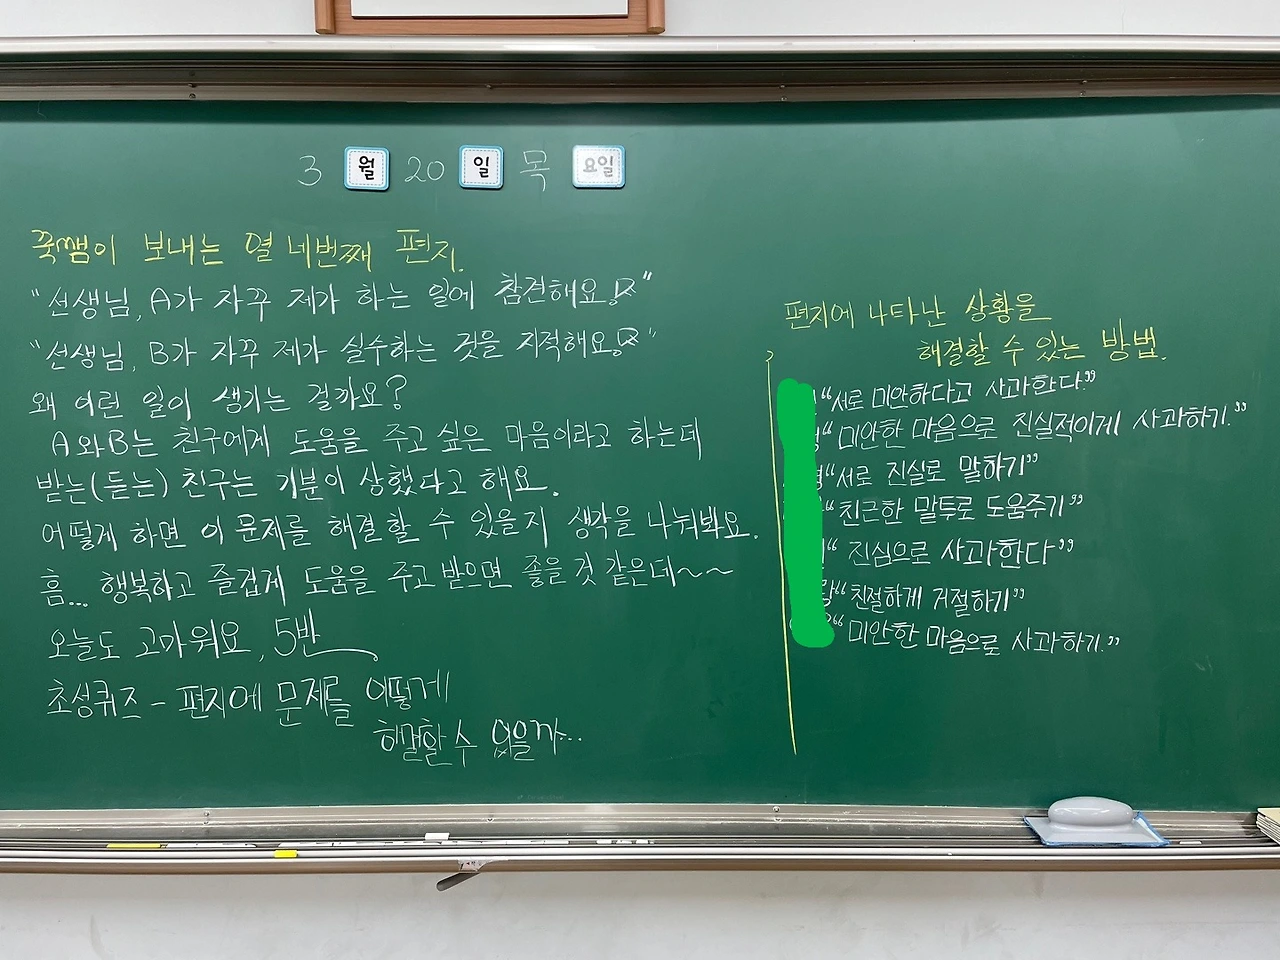 3 월 20 일 목 요일
꾹쌤이 보내는 열 네번째 편지.
"선생님, A가 자꾸 제가 하는 일에 참견해요."
"선생님, B가 자꾸 제가 실수하는 것을 지적해요."
왜 이런 일이 생기는 걸까요?
A와B는 친구에게 도움을 주고 싶은 마음이라고 하는데
받는(듣는) 친구는 기분이 상했다고 해요.
어떻게 하면 이 문제를 해결할 수 있을지 생각을 나눠봐요.
흠... 행복하고 즐겁게 도움을 주고 받으면 좋을 것 같은데~~
오늘도 고마워요, 5반
초성퀴즈 - 편지에 문제를 어떻게
해결할 수 있을까...
편지에 나타난 상황을
해결할 수 있는 방법.
"서로 미안하다고 사과한다."
"미안한 마음으로 진실적이게 사과하기."
"서로 진실로 말하기"
"친근한 말투로 도움주기"
"진심으로 사과한다"
"친절하게 거절하기"
"미안한 마음으로 사과하기."